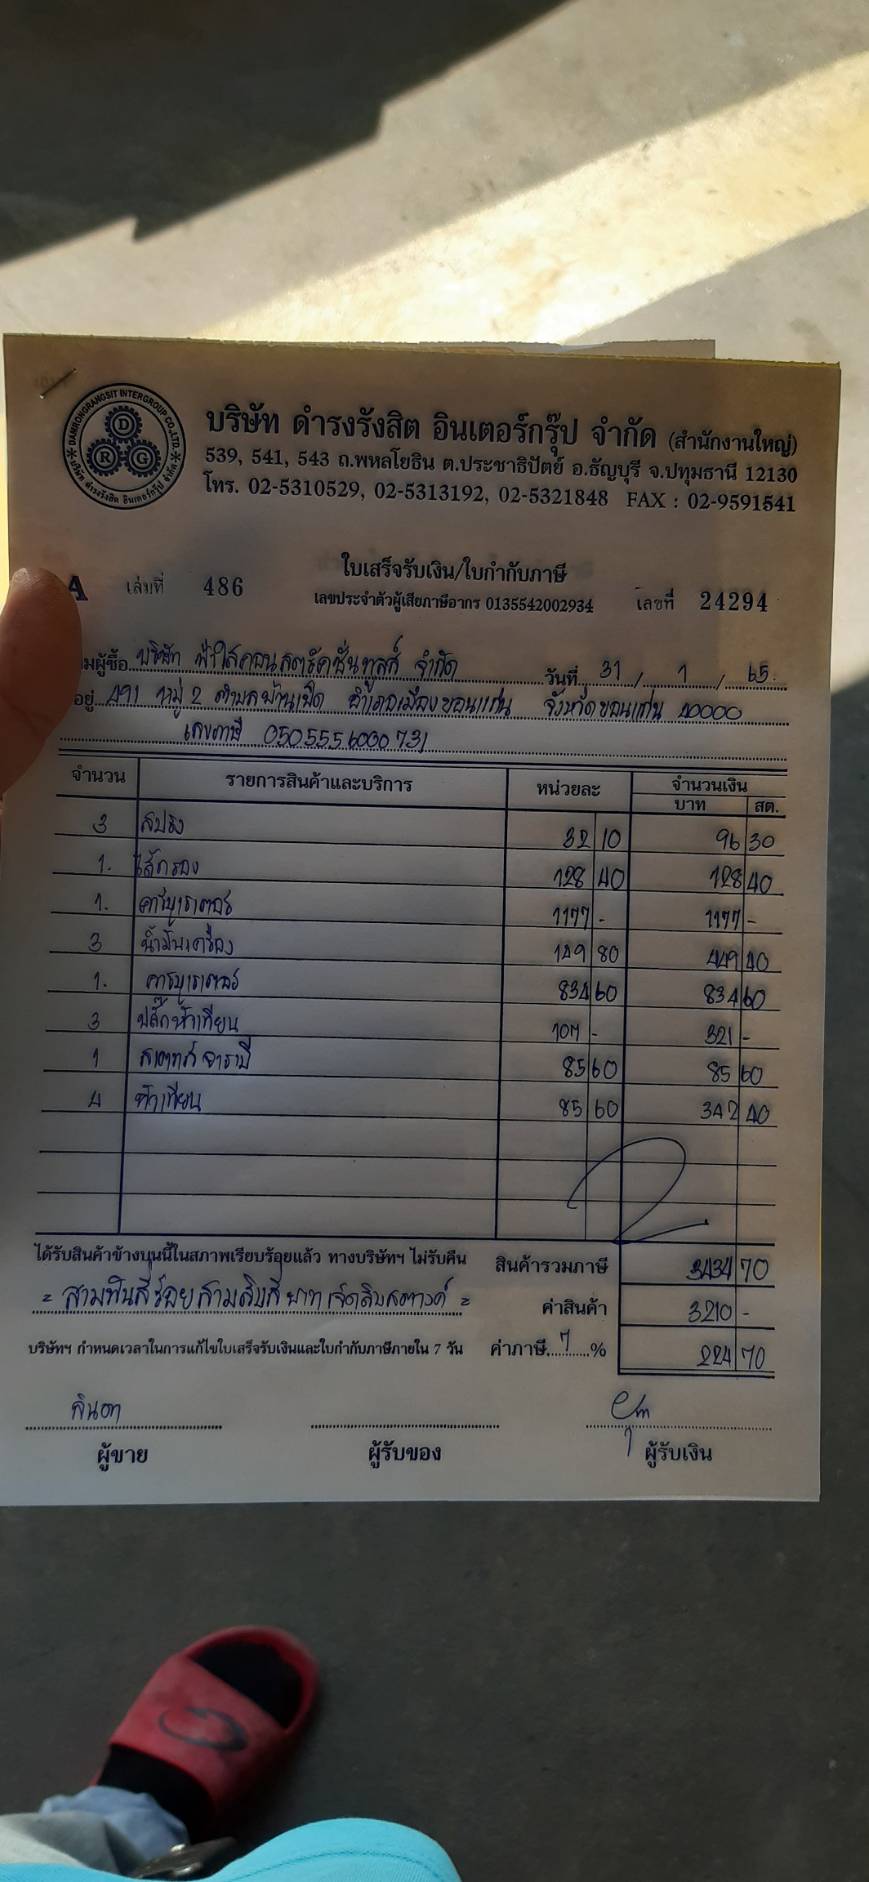 DAMRONGRANGSIT INTERGROUP CO.,LTD.
D R G
บริษัท ดำรงรังสิต อินเตอร์กรุ๊ป จำกัด
บริษัท ดำรงรังสิต อินเตอร์กรุ๊ป จำกัด (สำนักงานใหญ่)
539, 541, 543 ถ.พหลโยธิน ต.ประชาธิปัตย์ อ.ธัญบุรี จ.ปทุมธานี 12130
โทร. 02-5310529, 02-5313192, 02-5321848 FAX : 02-9591541
ใบเสร็จรับเงิน/ใบกำกับภาษี
A เล่มที่ 486 เลขประจำตัวผู้เสียภาษีอากร 0135542002934 เลขที่ 24294
มผู้ซื้อ บริษัท ฟ้าใสคอนสตรัคชั่นทูลส์ จำกัด วันที่ 31 / 1 / 65
อยู่ 491 หมู่ 2 ตำบลบ้านเป็ด อำเภอเมืองขอนแก่น จังหวัดขอนแก่น 40000
เลขภาษี 0505556000731
จำนวน รายการสินค้าและบริการ หน่วยละ จำนวนเงิน
บาท สต.
3 สปริง 32 10 96 30
1. ไส้กรอง 128 40 128 40
1. คาร์บูเรเตอร์ 1177 - 1177 -
3 น้ำมันเครื่อง 149 80 449 40
1. คาร์บูเรเตอร์ 834 60 834 60
3 ปลั๊กหัวเทียน 107 - 321 -
1 85 60 85 60
4 หัวเทียน 85 60 342 40
ได้รับสินค้าข้างบนนี้ในสภาพเรียบร้อยแล้ว ทางบริษัทฯ ไม่รับคืน สินค้ารวมภาษี 3434 70
= สามพันสี่ร้อยสามสิบสี่บาทเจ็ดสิบสตางค์ = ค่าสินค้า 3210 -
บริษัทฯ กำหนดเวลาในการแก้ไขใบเสร็จรับเงินและใบกำกับภาษีภายใน 7 วัน ค่าภาษี 7 % 224 70
ผู้ขาย ผู้รับของ ผู้รับเงิน